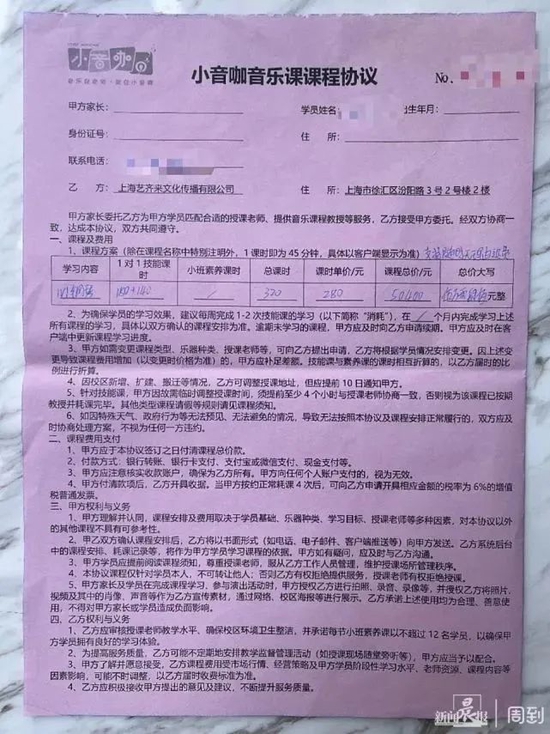 小音咖
音乐找老师·就在小音咖
小音咖音乐课课程协议
No.
甲方家长：
学员姓名
生年月：
身份证号：
住 所：
联系电话：
乙 方：上海艺齐来文化传播有限公司
住 所：上海市徐汇区汾阳路3号2号楼2楼
甲方家长委托乙方为甲方学员匹配合适的授课老师、提供音乐课程教授等服务，乙方接受甲方委托。经双方协商一
致，达成本协议，双方共同遵守。
一、课程及费用
1、课程方案（除在课程名称中特别注明外，1课时即为45分钟，具体以客户端显示为准）
学习内容 1对1技能课时 小班素养课时 总课时 课时单价/元 课程总价/元 总价大写
/ 280 元整
2、为确保学员的学习效果，建议每周完成1-2次技能课的学习（以下简称“消耗”），在 / 个月内完成学习上
述所有课程的学习，具体以双方确认的课程安排为准。逾期未学习的课程，甲方应及时向乙方申请续期。甲方应及时在客
户端中更新课程学习进度。
3、甲方如需变更课程类型、乐器种类、授课老师等，可向乙方提出申请，乙方将根据学员情况安排变更。因上述变
更导致课程费用增加（以变更时价格为准）的，甲方应补足差额。技能课与素养课的课时相互折算的，以乙方届时的比
例进行折算。
4、因校区新增、扩建、搬迁等情况，乙方可调整授课地址，但应提前10日通知甲方。
5、针对技能课，甲方学员因故需临时调整授课时间，须提前至少4个小时与授课老师协商一致，否则视为该课程已按期
教授并耗课完毕。其他类型课程请假等规则请见课程须知。
6、如因特殊天气、政府行为等无法预见、无法避免的情况，导致无法按照本协议及课程安排正常履行的，双方应及
时协商处理方案，不视为任何一方违约。
二、课程费用支付
1、甲方应于本协议签订之日付清课程总价款。
2、付款方式：银行转账、银行卡支付、支付宝或微信支付、现金支付等。
3、甲方应注意核实收款账户，确保为乙方所有。甲方向任何个人账户支付的，视为无效。
4、甲方付清款项后，乙方开具收据。当甲方按约正常耗课4次后，可向乙方申请开具相应金额的税率为6%的增值
税普通发票。
三、甲方权利与义务
1、甲方理解并认同，课程安排及费用取决于学员基础、乐器种类、学习目标、授课老师等多种因素，对本协议以外
的其他课程不具有可参考性。
2、甲乙双方确认课程安排后，乙方将以书面形式（如电话、电子邮件、客户端推送等）向甲方发送。乙方系统后台
中的课程安排、耗课记录等，将作为甲方学员学习课程的依据。甲方如有疑问，应及时与乙方沟通。
3、甲方学员应提前阅读课程须知，尊重授课老师，服从乙方工作人员管理，维护授课场所管理秩序。
4、本协议课程仅针对学员本人，不可转让他人；否则乙方有权拒绝提供服务，授课老师有权拒绝授课。
5、甲方家长及学员在完成课程学习、参与演出活动时，甲方授权乙方进行拍照、录音、录像等，并授权乙方将照片、
视频及其中的肖像、声音等作为乙方宣传素材，通过网络、校区海报等进行展示。乙方承诺上述使用均为合理、善意使
用，不得对甲方家长或学员造成负面影响。
四、乙方权利与义务
1、乙方应审核授课老师教学水平、确保校区环境卫生整洁，并承诺每节小班素养课以不超过12名学员，以确保甲
方学员拥有良好的学习体验。
2、为提高服务质量，乙方可能不定期地安排教学监督管理活动（如授课现场随堂旁听等），甲方应当予以配合。
3、甲方了解并愿意接受，乙方课程费用受市场行情、经营策略及甲方学员阶段性学习水平、老师资源、课程内容等
因素影响，可能不时调整，以乙方届时收费标准为准。
4、乙方应积极接收甲方提出的意见及建议，不断提升服务质量。
新闻晨报 周到